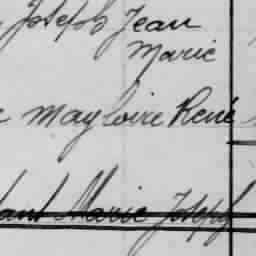 Joseph Jean
Marie
Mayloire René
Marie Joseph